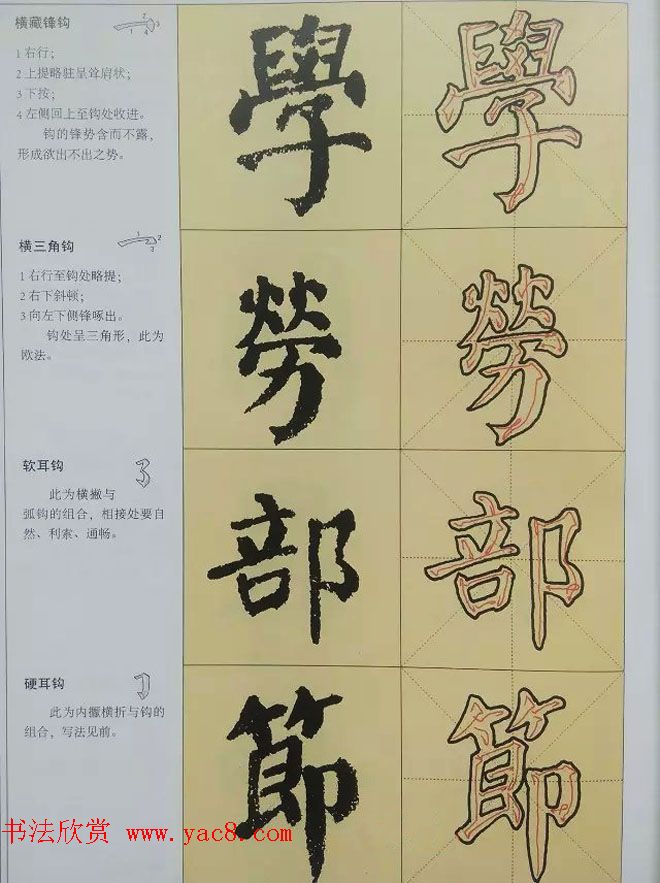 横藏锋钩
1 右行；
2 上提略驻呈耸肩状；
3 下按；
4 左侧回上至钩处收进。
钩的锋势含而不露，
形成欲出不出之势。
學
學
横三角钩
1 右行至钩处略提；
2 右下斜顿；
3 向左下侧锋啄出。
钩处呈三角形，此为
欧法。
勞
勞
软耳钩
此为横撇与
弧钩的组合，相接处要自
然、利索、通畅。
部
部
硬耳钩
此为内擫横折与钩的
组合，写法见前。
節
節
书法欣赏 www.yac8.com